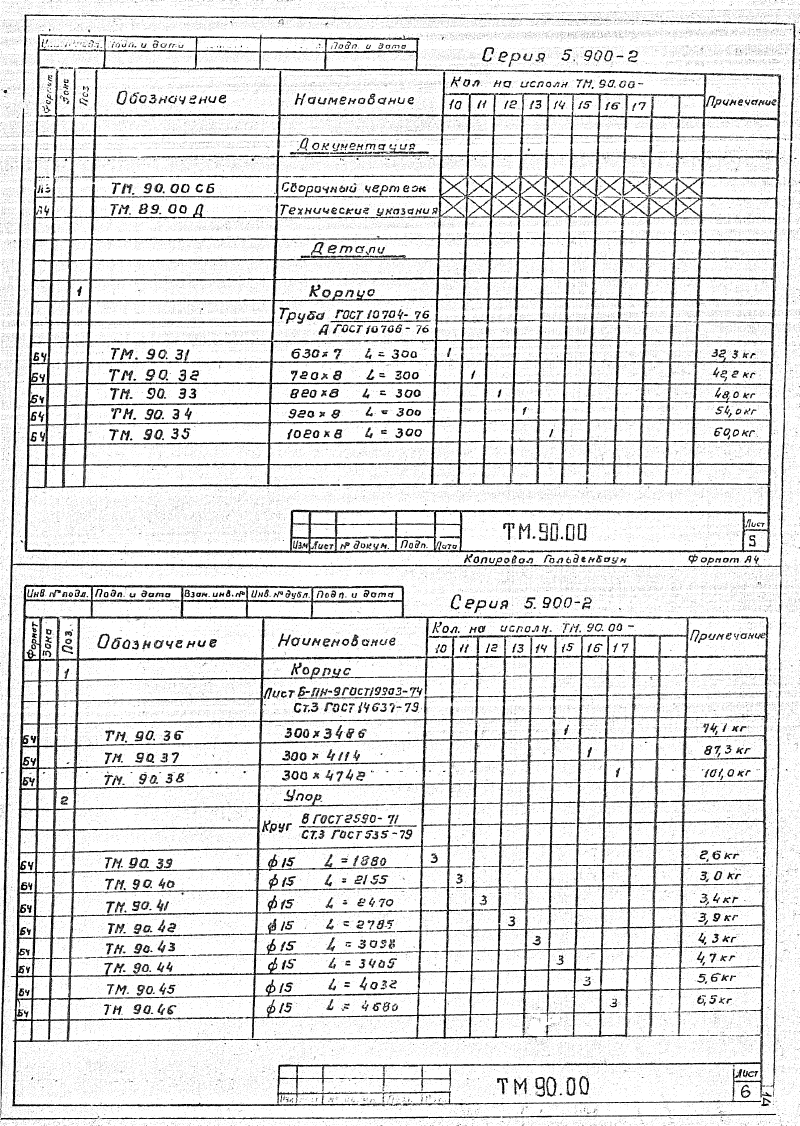 Подп. и дата Подп. и дата Серия 5.900-2
Формат Зона Поз. Обозначение Наименование Кол. на исполн ТМ.90.00- Примечание
10 11 12 13 14 15 16 17
Документация
А3 ТМ. 90.00 СБ Сборочный чертеж
А4 ТМ. 89.00 Д Технические указания
Детали
1 Корпус
Труба ГОСТ 10704-76
Д ГОСТ 10706-76
БЧ ТМ. 90.31 630×7 L = 300 1 32,3 кг
БЧ ТМ. 90.32 720×8 L = 300 1 42,2 кг
БЧ ТМ. 90.33 820×8 L = 300 1 48,0 кг
БЧ ТМ. 90.34 920×8 L = 300 1 54,0 кг
БЧ ТМ. 90.35 1020×8 L = 300 1 60,0 кг
Изм Лист № докум. Подп. Дата ТМ.90.00 Лист 5
Копировал Гольденбаун Формат А4
Инв № подл. Подп. и дата Взам. инв. № Инв. № дубл. Подп. и дата Серия 5.900-2
Формат Зона Поз. Обозначение Наименование Кол. на исполн. ТМ.90.00- Примечание
10 11 12 13 14 15 16 17
1 Корпус
Лист Б-ПН-9 ГОСТ 19903-74
Ст.3 ГОСТ 14637-79
БЧ ТМ. 90.36 300×3486 1 74,1 кг
БЧ ТМ. 90.37 300×4114 1 87,3 кг
БЧ ТМ. 90.38 300×4742 1 101,0 кг
2 Упор.
Круг В ГОСТ 2590-71
Ст.3 ГОСТ 535-79
БЧ ТМ. 90.39 ф15 L = 1880 3 2,6 кг
БЧ ТМ. 90.40 ф15 L = 2155 3 3,0 кг
БЧ ТМ. 90.41 ф15 L = 2470 3 3,4 кг
БЧ ТМ. 90.42 ф15 L = 2785 3 3,9 кг
БЧ ТМ. 90.43 ф15 L = 3098 3 4,3 кг
БЧ ТМ. 90.44 ф15 L = 3405 3 4,7 кг
БЧ ТМ. 90.45 ф15 L = 4032 3 5,6 кг
БЧ ТМ. 90.46 ф15 L = 4680 3 6,5 кг
ТМ 90.00 Лист 6
14